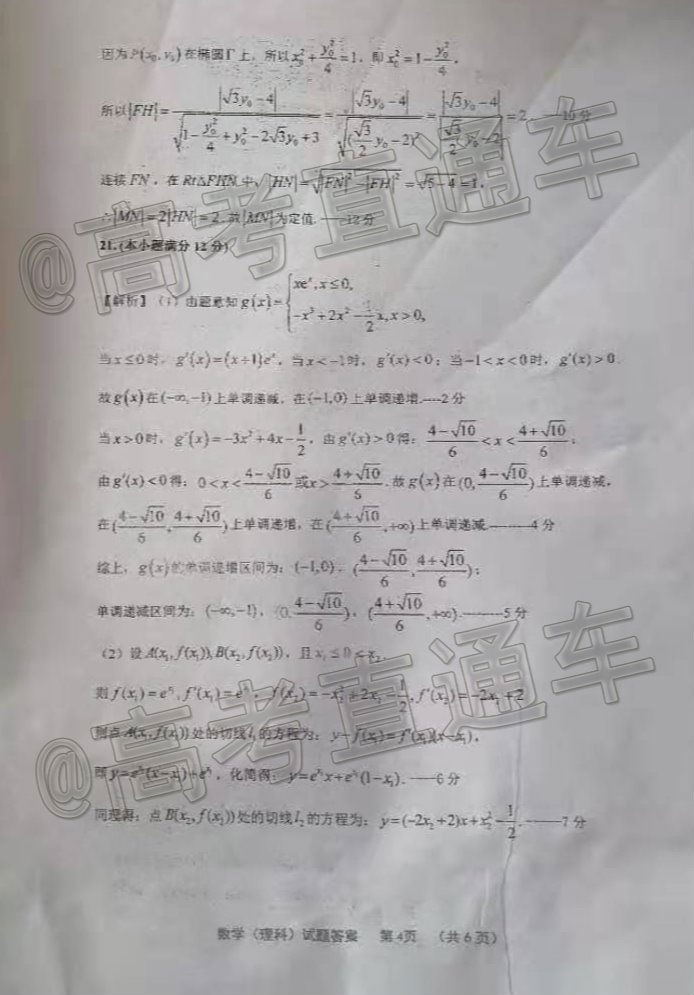 因为P(x₀,y₀)在椭圆Γ上，所以x₀²+y₀²/4=1，即x₀²=1-y₀²/4，
所以|FH|=|√3y₀-4|/√(1-y₀²/4+y₀²-2√3y₀+3)=|√3y₀-4|/√(√3/2 y₀-2)²=|√3y₀-4|/|√3/2 y₀-2|=2. ……10分
连接FN，在Rt△FHN中，|HN|=√(|FN|²-|FH|²)=√(5-4)=1，
∴|MN|=2|HN|=2，故|MN|为定值.……12分
21.(本小题满分12分)
【解析】（1）由题意知g(x)={xeˣ,x≤0, -x³+2x²-1/2 x,x>0,
当x≤0时，g'(x)=(x+1)eˣ，当x<-1时，g'(x)<0；当-1<x<0时，g'(x)>0.
故g(x)在(-∞,-1)上单调递减，在(-1,0)上单调递增.----2分
当x>0时，g'(x)=-3x²+4x-1/2，由g'(x)>0得：(4-√10)/6<x<(4+√10)/6；
由g'(x)<0得：0<x<(4-√10)/6或x>(4+√10)/6.故g(x)在(0,(4-√10)/6)上单调递减，
在((4-√10)/6,(4+√10)/6)上单调递增，在((4+√10)/6,+∞)上单调递减.--------4分
综上，g(x)的单调递增区间为：(-1,0)，((4-√10)/6,(4+√10)/6)；
单调递减区间为：(-∞,-1)，(0,(4-√10)/6)，((4+√10)/6,+∞).--------5分
（2）设A(x₁,f(x₁)),B(x₂,f(x₂))，且x₁≤0<x₂.
则f(x₁)=eˣ¹,f'(x₁)=eˣ¹，f(x₂)=-x₂²+2x₂-1/2,f'(x₂)=-2x₂+2
则点A(x₁,f(x₁))处的切线l₁的方程为：y-f(x₁)=f'(x₁)(x-x₁)，
即y=eˣ¹(x-x₁)+eˣ¹，化简得：y=eˣ¹x+eˣ¹(1-x₁).-----6分
同理得：点B(x₂,f(x₂))处的切线l₂的方程为：y=(-2x₂+2)x+x₂²-1/2.------7分
数学（理科）试题答案 第4页 （共6页）
@高考直通车
@高考直通车